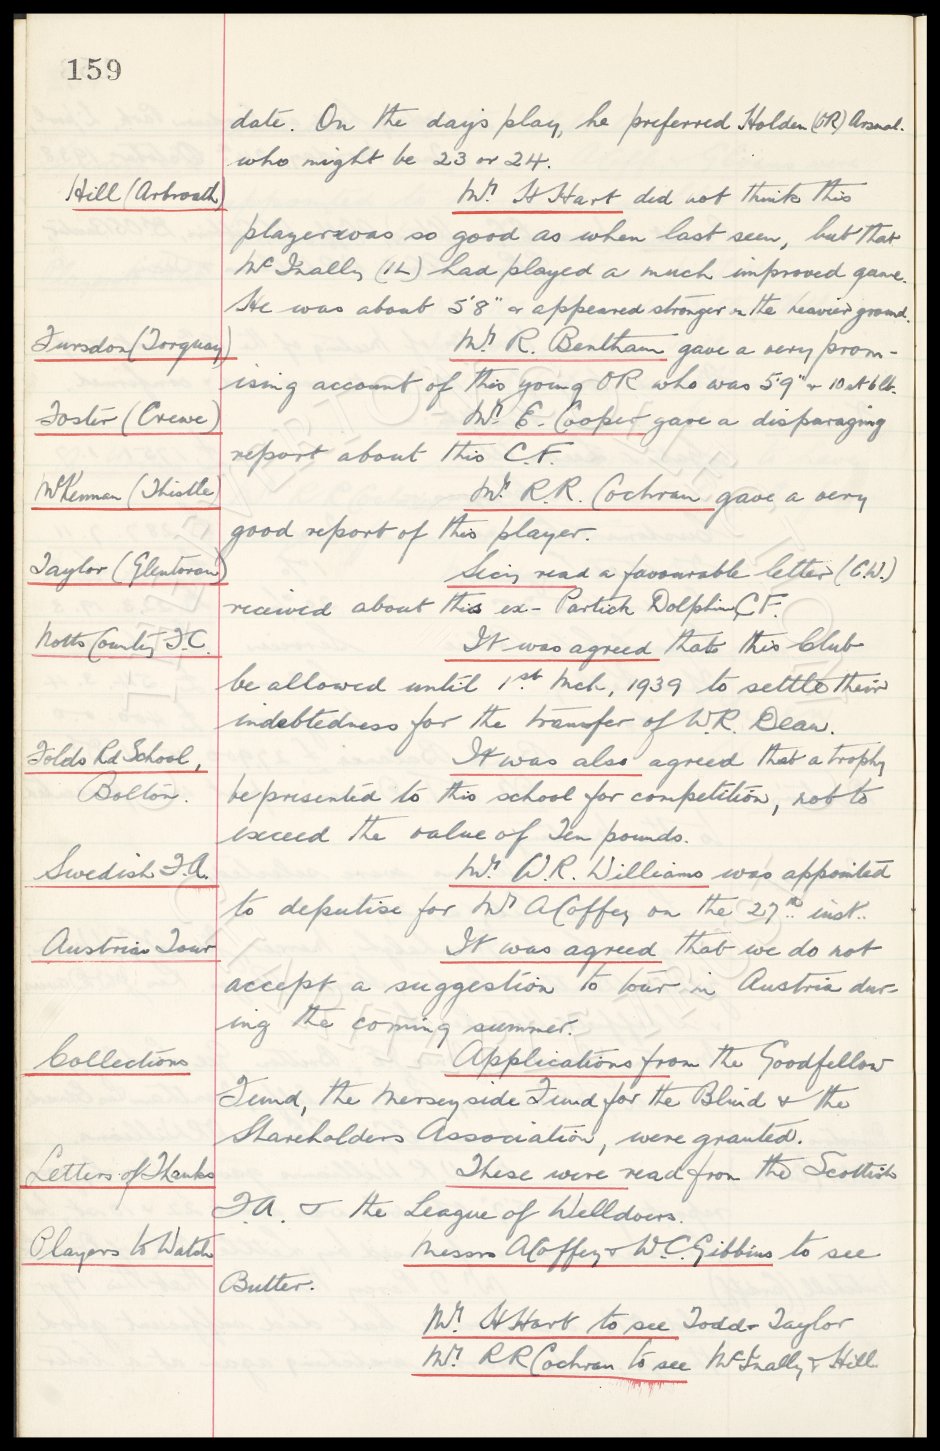 159
date. On the days play, he preferred Holden (OR) Arsenal.
who might be 23 or 24.
Hill (Arbroath) Mr. H Hart did not think this
player was so good as when last seen, but that
McInally (IL) had played a much improved game.
He was about 5'8" & appeared stronger on the heavier ground.
Fursdon (Torquay) Mr. R. Bentham gave a very prom-
ising account of this young OR who was 5'9" & 10 st 6 lb.
Foster (Crewe) Mr. E. Cooper gave a disparaging
report about this C.F.
McKennan (Thistle) Mr. R.R. Cochran gave a very
good report of this player.
Taylor (Glentoran) Secy read a favourable letter (C.W.)
received about this ex-Partick Dolphin C.F.
Notts County F.C. It was agreed that this Club
be allowed until 1st Mch, 1939 to settle their
indebtedness for the transfer of W.R. Dean.
Folds Rd School, It was also agreed that a trophy
Bolton. be presented to this school for competition, not to
exceed the value of Ten pounds.
Swedish F.A. Mr. W.R. Williams was appointed
to deputise for Mr A Coffey on the 27th inst.
Austria Tour It was agreed that we do not
accept a suggestion to tour in Austria dur-
ing the coming summer.
Collections Applications from the Goodfellow
Fund, the Merseyside Fund for the Blind & the
Shareholders Association, were granted.
Letters of Thanks These were read from the Scottish
F.A. & the League of Welldoers.
Players to Watch Messrs A Coffey & W.C. Gibbins to see
Butter.
Mr. H Hart to see Todd & Taylor
Mr. R R Cochran to see McInally & Hill